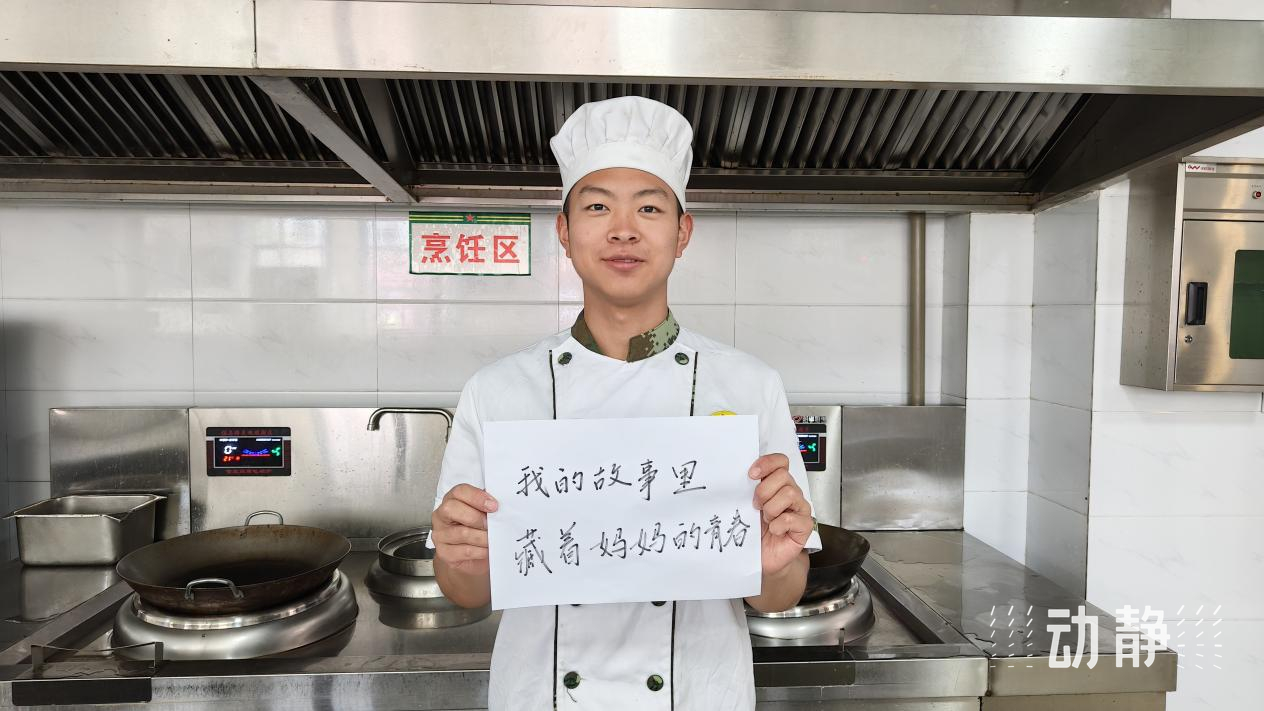 烹饪区
我的故事里
藏着妈妈的青春
动静